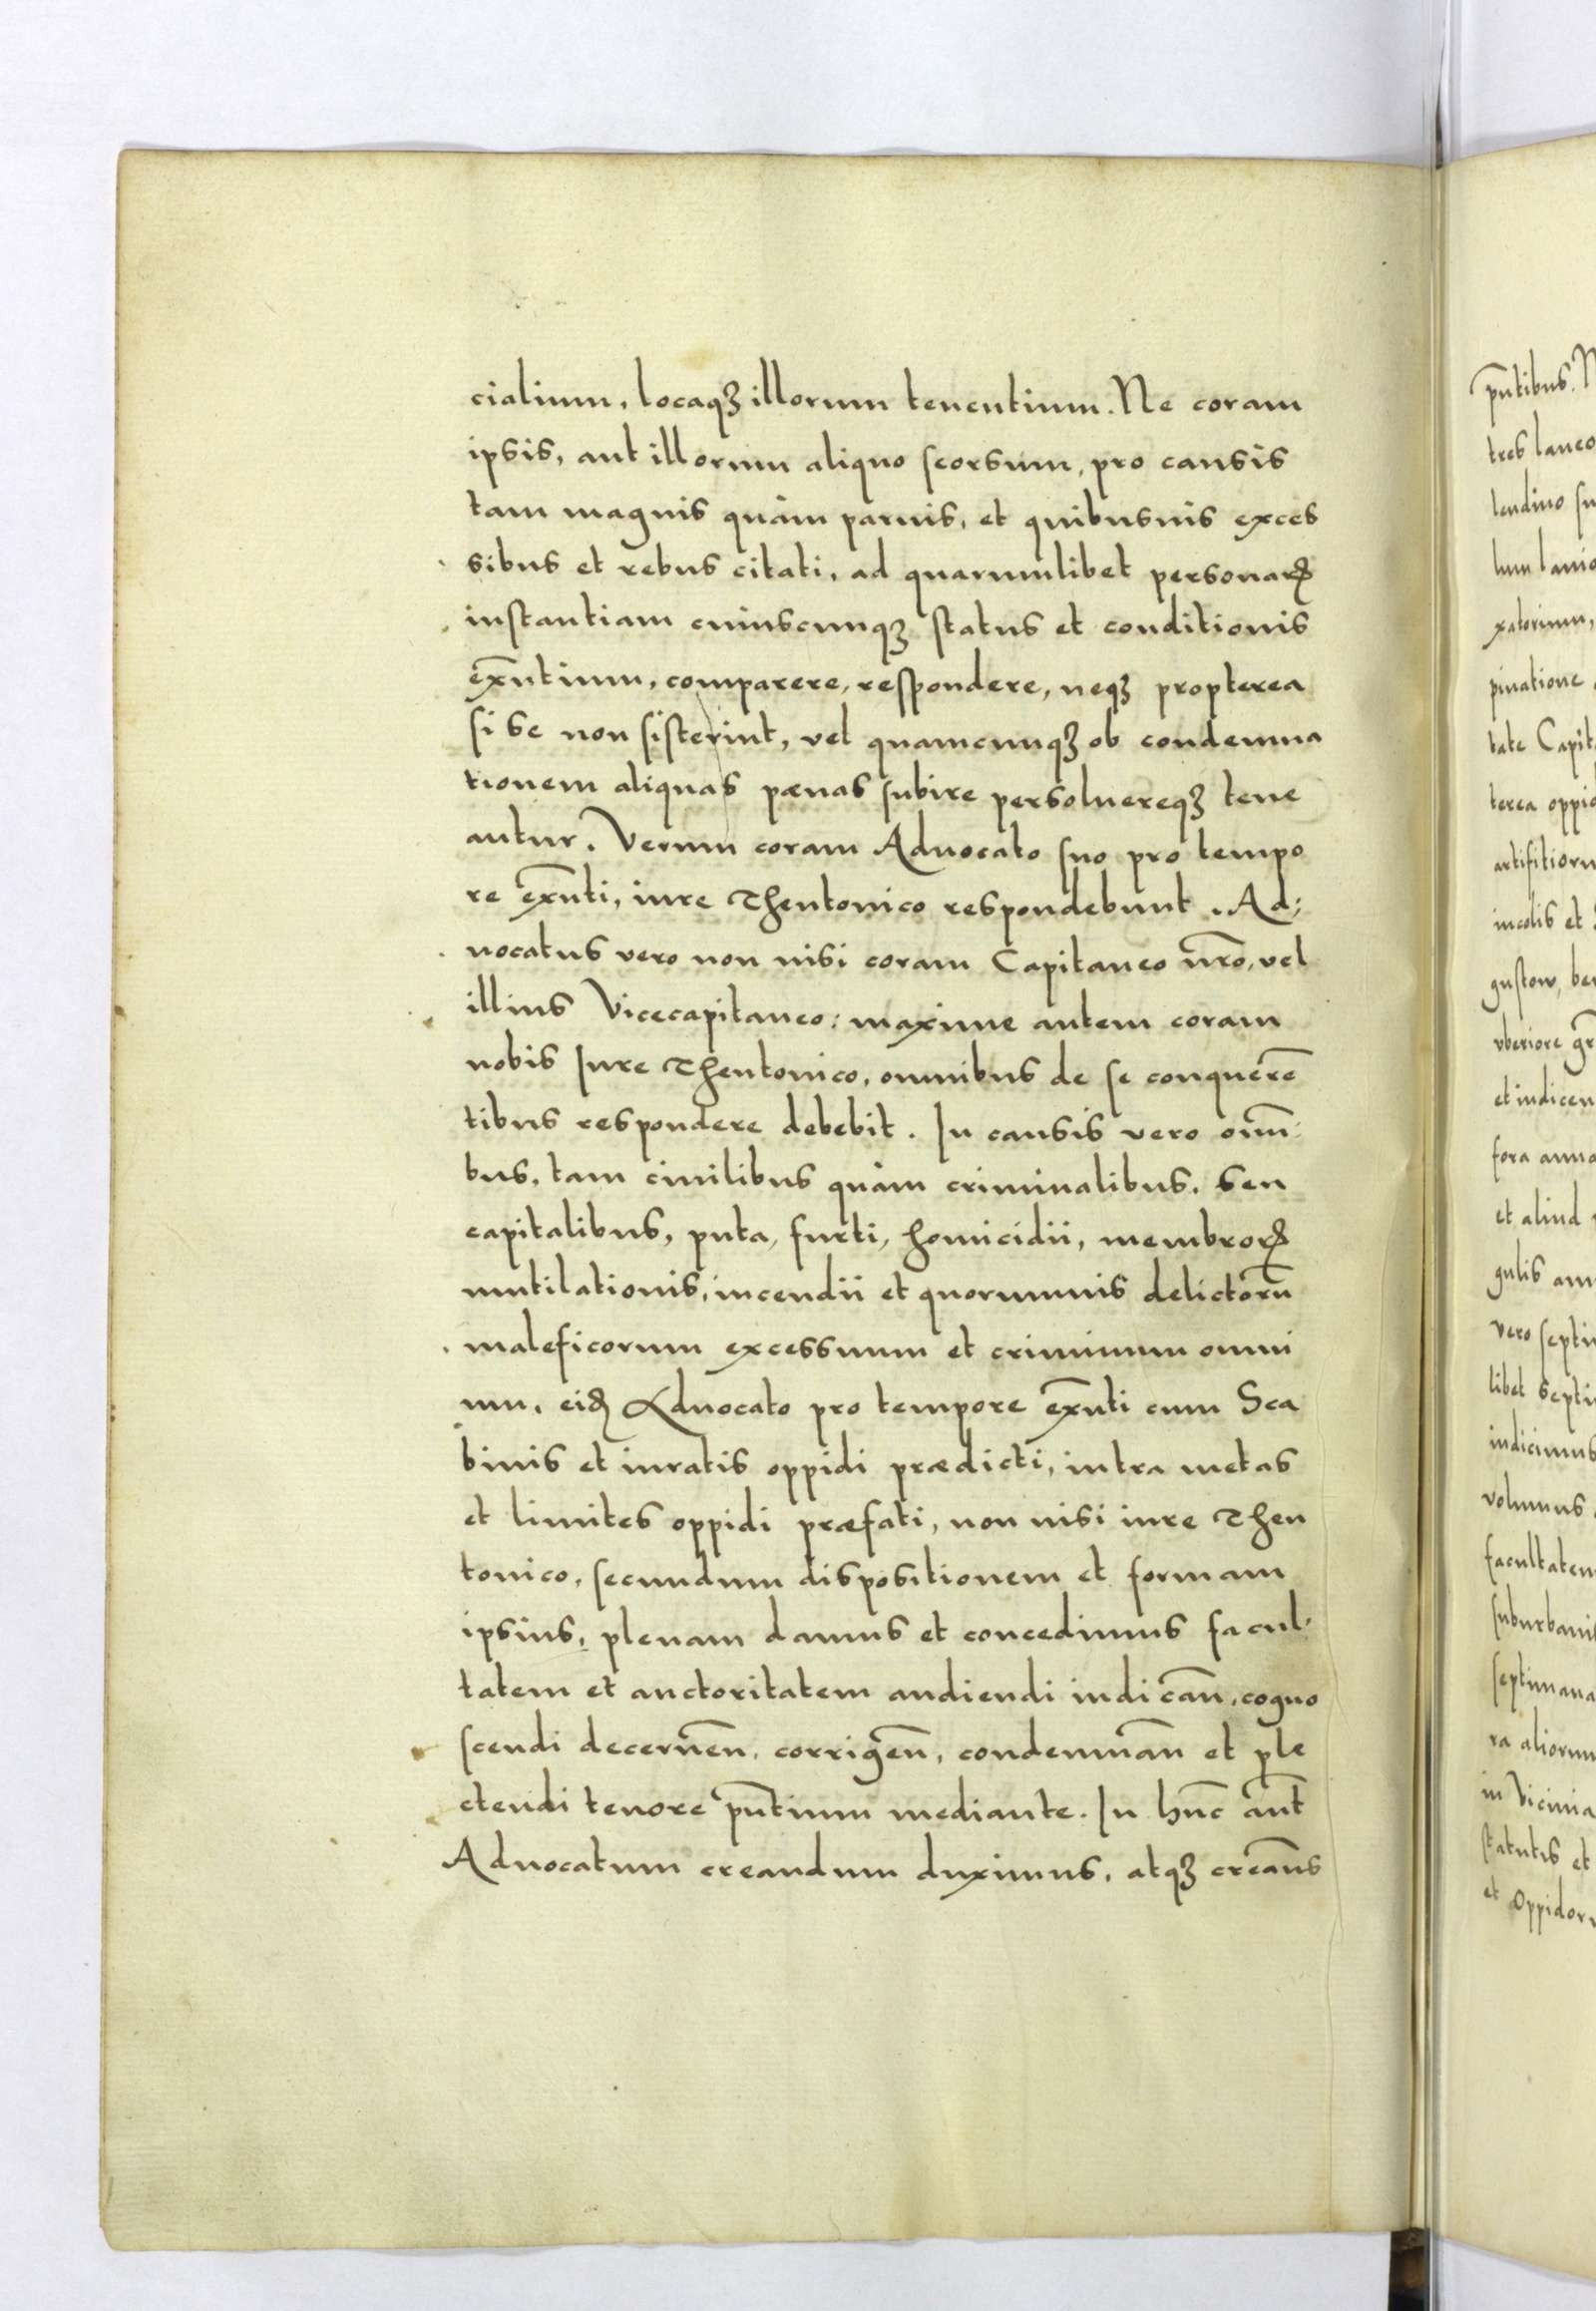 cialium, locaqꝫ illorum tenentium. Ne coram
ipsis, aut illorum aliquo seorsum, pro causis
tam magnis quàm paruis, et quibusuis exces
sibus et rebus citati, ad quarumlibet personarꝝ
instantiam cuiuscunqꝫ status et conditionis
exn̄tium, comparere, respondere, neqꝫ propterea
si se non sisterint, vel quamcunqꝫ ob condemna
tionem aliquas pænas subire persoluereqꝫ tene
antur. Verum coram Aduocato suo pro tempo
re exn̄ti, iure Theutonico respondebunt. Ad:
uocatus vero non nisi coram Capitaneo nr̄o, vel
illius Vicecapitaneo: maxime autem coram
nobis Iure Theutonico, omnibus de se conquerē
tibus respondere debebit. In causis vero omī
bus, tam ciuilibus quàm criminalibus, seu
capitalibus, puta, furti, homicidii, membrorꝝ
mutilationis, incendii et quorumuis delictorū
maleficorum excessuum et criminum omni
um, eidꝫ Aduocato pro tempore exn̄ti cum Sca
binis et iuratis oppidi prædicti, intra metas
et limites oppidi præfati, non nisi iure Theu
tonico, secundum dispositionem et formam
ipsius, plenam damus et concedimus facul-
tatem et auctoritatem audiendi iudicān, cogno
scendi decernēn, corrigēn, condemnān et ple
ctendi tenore pn̄tium mediante. In hūc aūt
Aduocatum creandum duximus, atqꝫ creāus
pn̄tibus. N
tres laneo
lendino su
lum lanio
xatorium,
pinatione
tate Capit
terea oppid
artifitioru
incolis et
gustow, be
vberiore gr̄
et indicen
fora anno
et aliud
gulis ann
vero septi
libet septi
indicimus
volumus
facultatem
suburbani
septimana
ra aliorum
in Vicinia
statutis et
et Oppidor